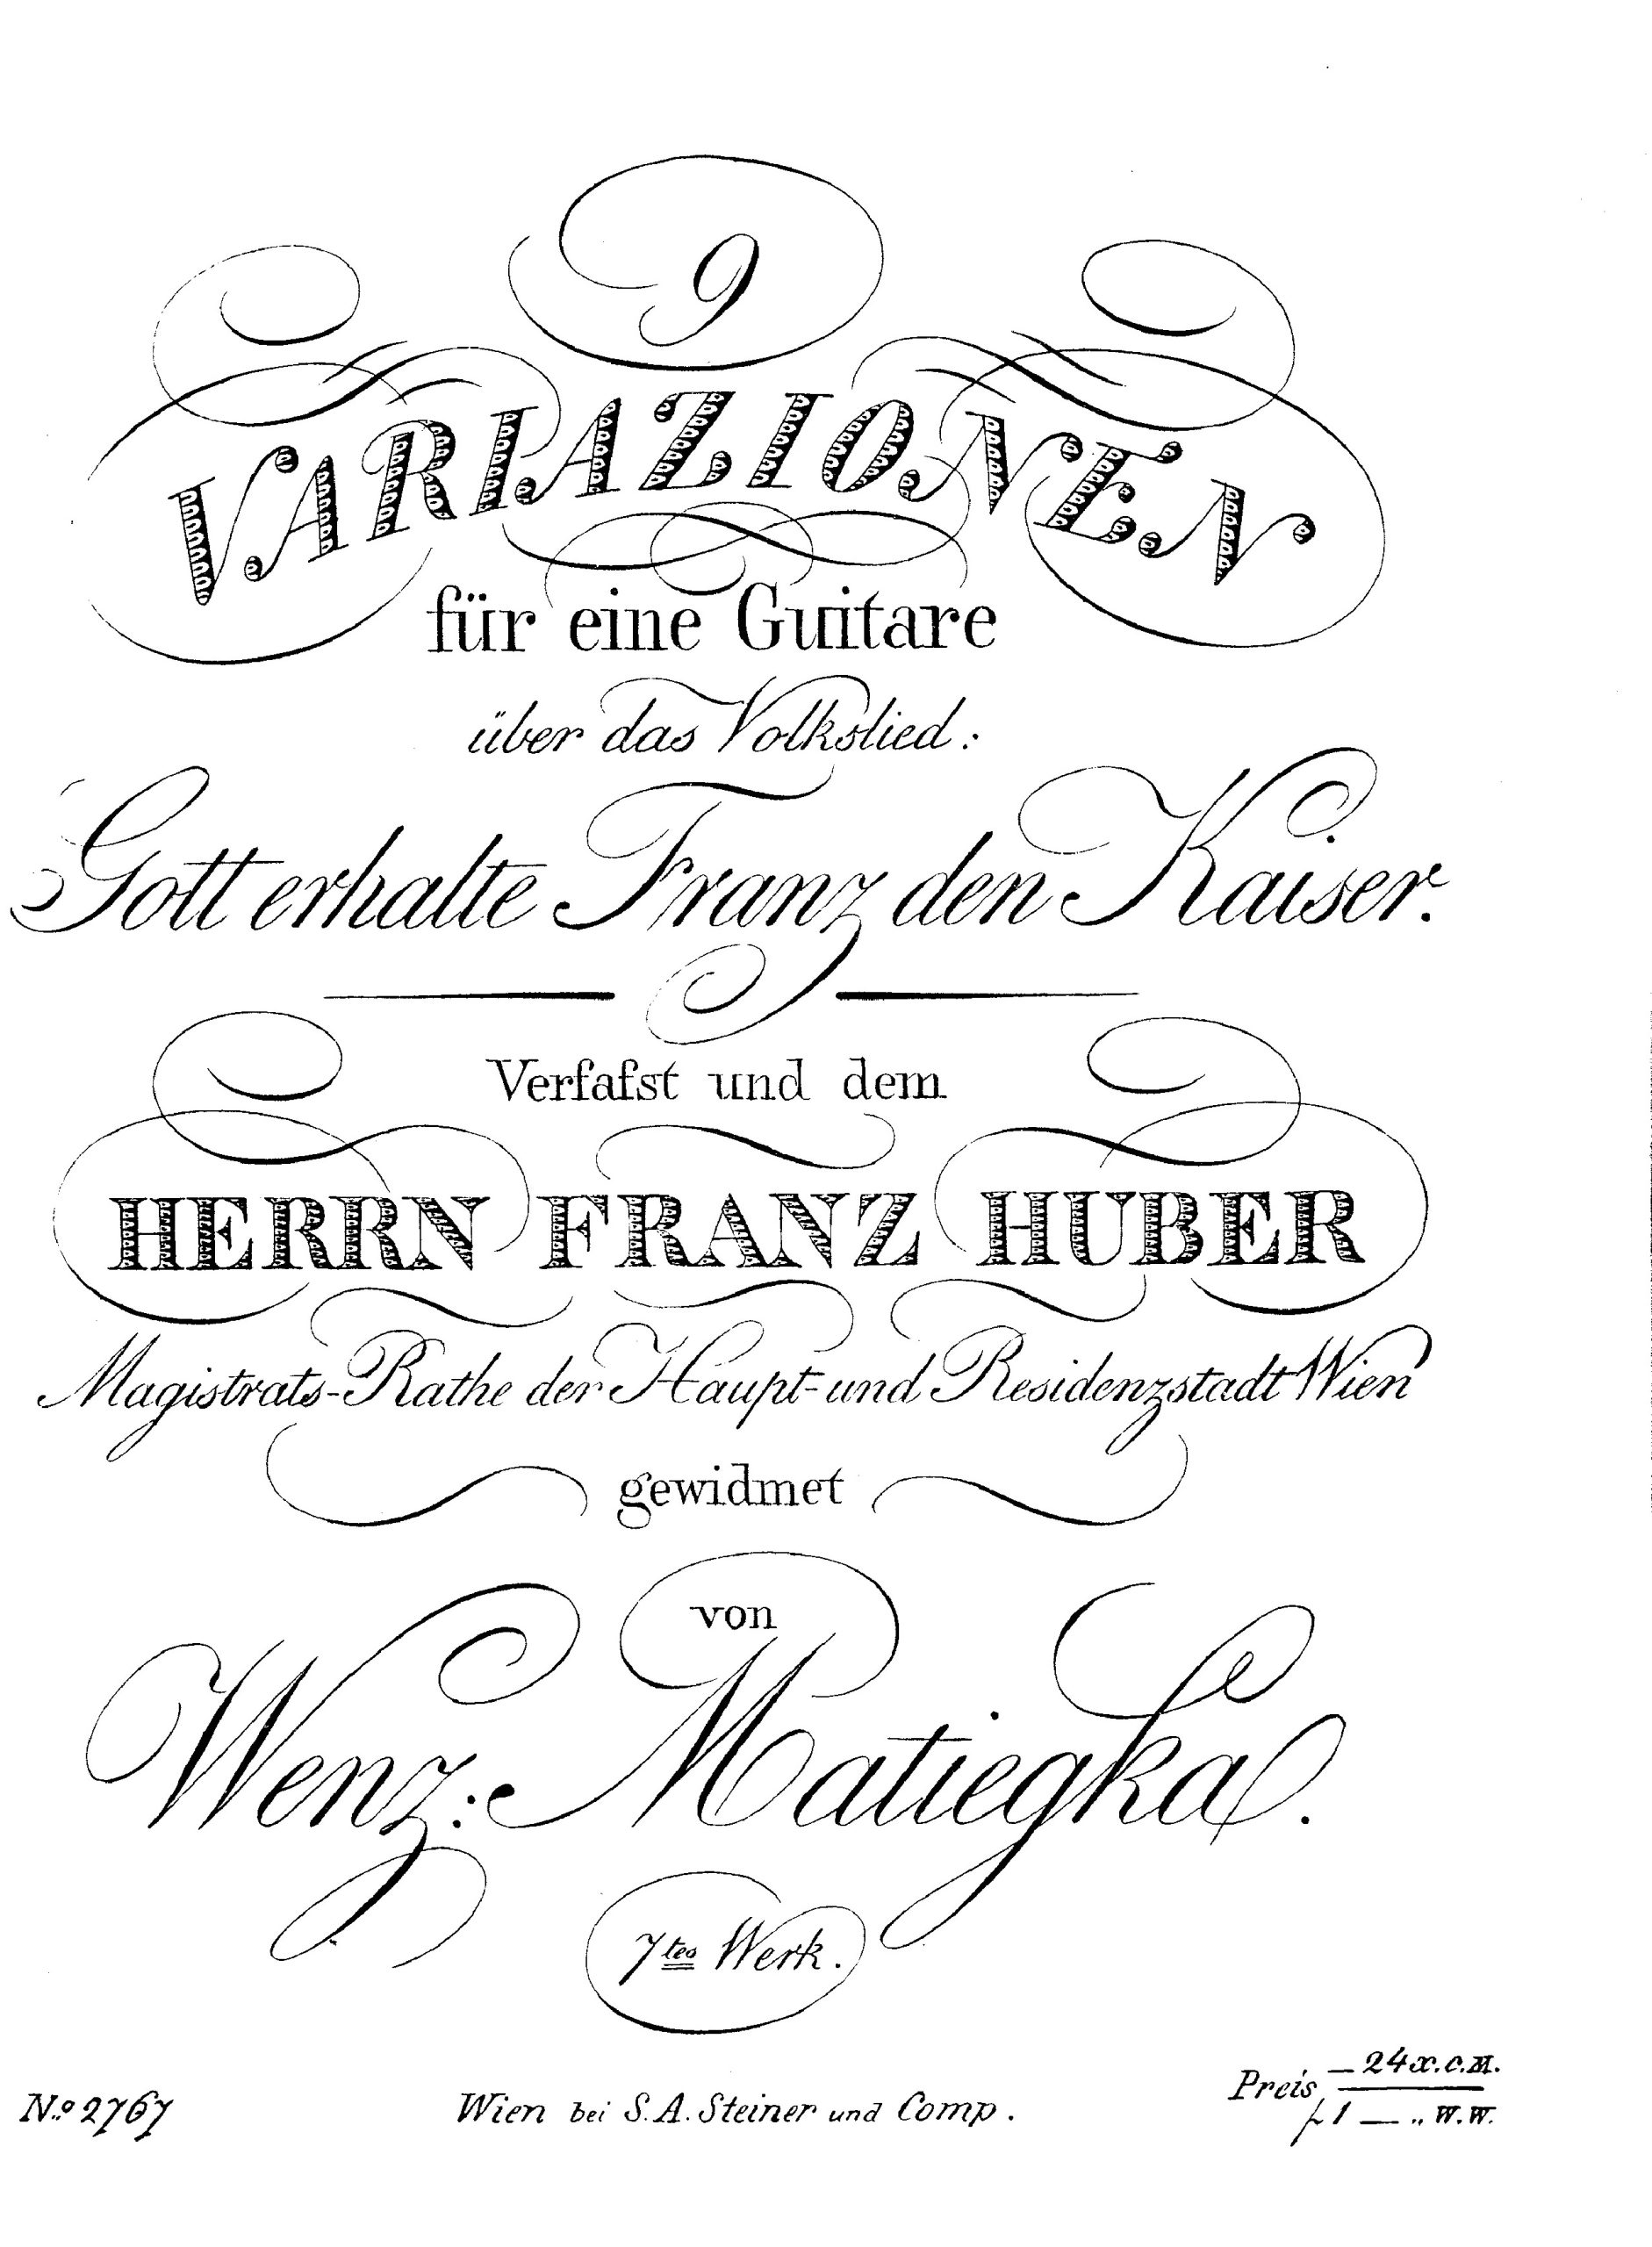 9
VARIAZIONEN
für eine Guitare
über das Volkslied:
Gott erhalte Franz den Kaiser.
Verfaſst und dem
HERRN FRANZ HUBER
Magistrats-Rathe der Haupt- und Residenzstadt Wien
gewidmet
von
Wenz: Matiegka.
7tes Werk.
No. 2767
Wien bei S. A. Steiner und Comp.
Preis — 24 x. C. M.
f 1 — „ W. W.